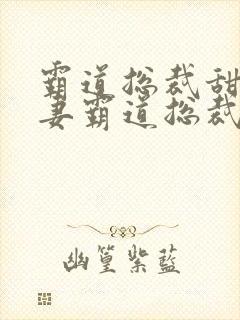 霸道总裁甜
妻霸道总裁
幽篁紫蓝